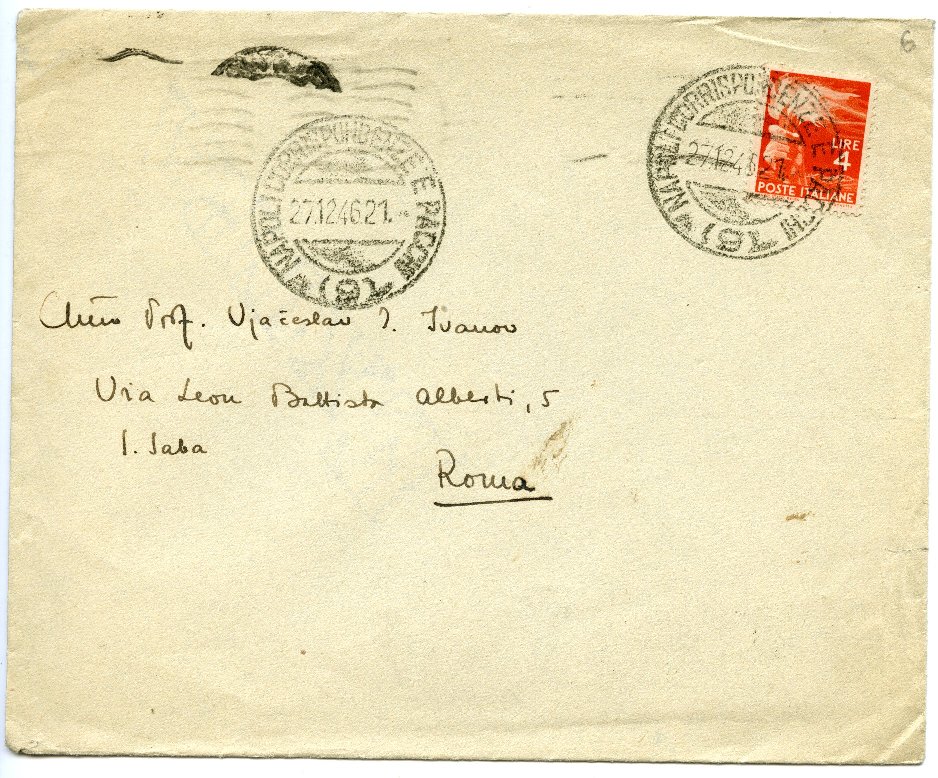 6
NAPOLI CORRISPONDENZE E PACCHI
27.12.46.21.
NAPOLI CORRISPONDENZE E PACCHI
27.12.46.21.
LIRE
4
POSTE ITALIANE
Chmo Prof. Vjačeslav I. Ivanov
Via Leon Battista Alberti, 5
S. Saba
Roma